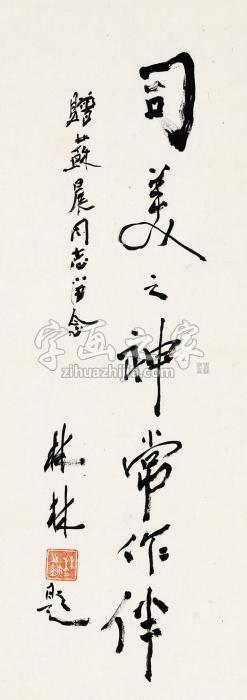 司美之神常作伴
贈蘇晨同志留念
林林
题
字画之家
zihuazhijia.com